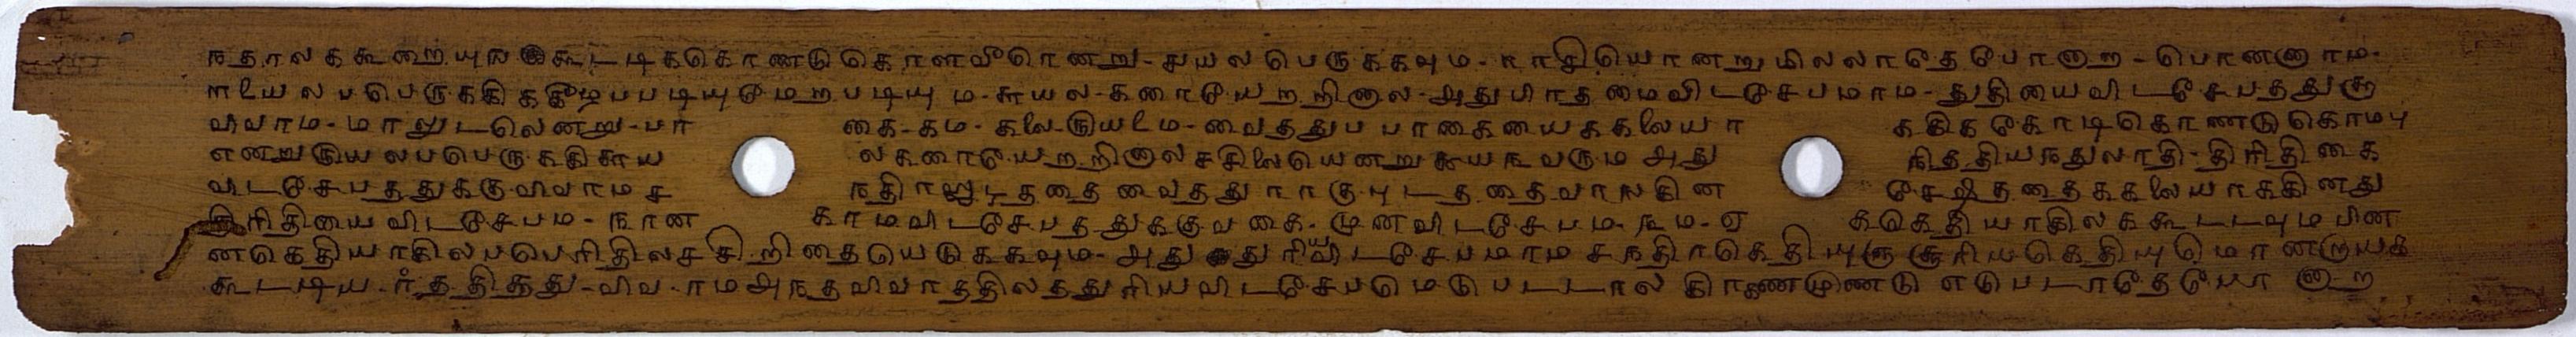 நதாலககூறையுஙகூடடிககொணடுகொளவீரெனறு-சுயலபெருககவும-ராசியொனறுமிலலாதேபோனாற-பொனனாம-
ரயேலபபெருககிககீழபபடியுமேறபடியும-சுயல-கரையேறறினால-அதுபிரதமைவிடசேபமாம-துதியைவிடசேபததுகு
விவாம-மானுடலெனறு-பர கை-கம-கலை-றுயடம-வைததுப பாகையைககலையா ககிககோடிகொணடுகொமபு
எனறுறுயலபபெருககிசுய லகரையேறறினாலசகிலையெனறுசுயஙவரும அது நிததியஙதுலாதி-திரிதிகை
விடசேபததுககு-விவாமச நதிரனுடததை வைதது ராகு-புடததைவாஙகின சேஷிததைககலையாககினது
திரிதியைவிடசேபம-நான காமவிடசேபததுககுவகை-முனவிடசேபம-நம-ஏ ககெதியாகிலககூடடவும பின
னகெதியாகிலபபெரிதிலசசிறிதையெடுககவும-அது துரியவிடசேபமாம சநதிரகெதியுஞசூரியகெதியுமொனறாயக
கூடடிய-ரததிதது-விவ-ரமஅநதவிவாததிலததுரியவிடசேபமெடுபடடால கிராணமுணடு எடுபடாதேபோ னாற